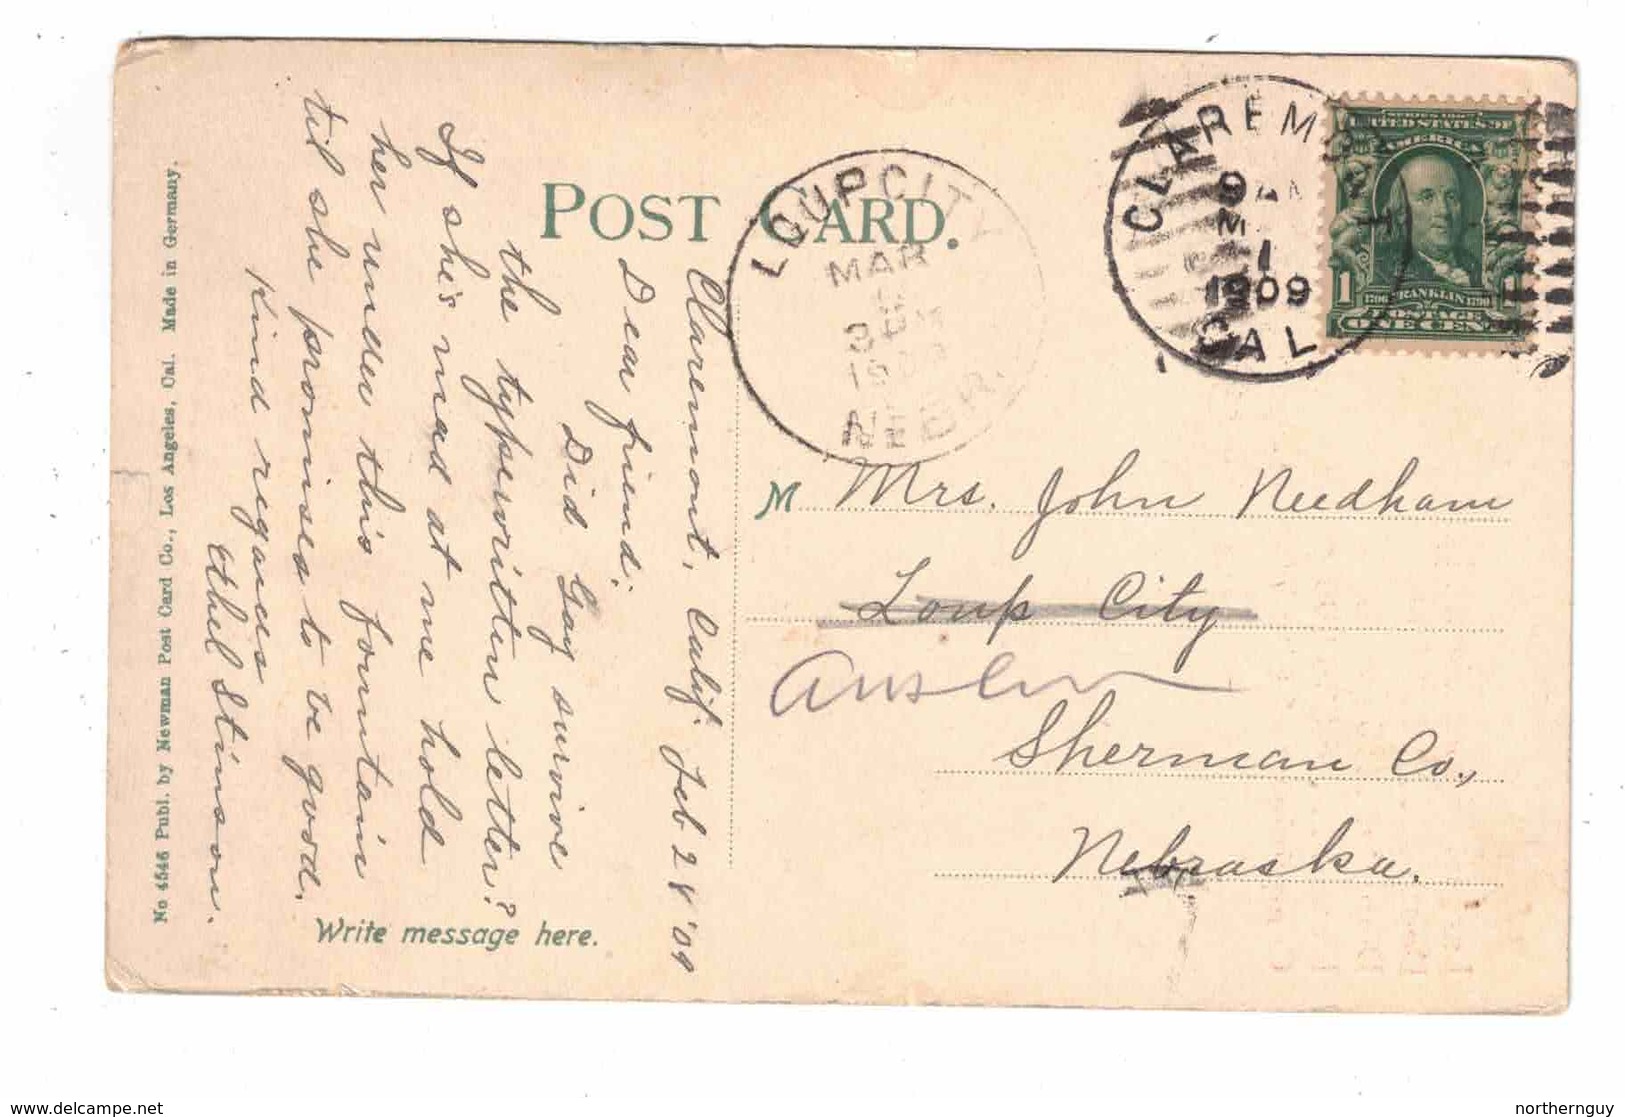 POST CARD.
Claremont, Calif. Feb 28 '09
Dear friend:
Did Gay survive
the typewritten letter?
If she's mad at me hold
her under this fountain
til she promises to be good.
Kind regards
Ethel Stinson.
Write message here.
No 4546 Publ. by Newman Post Card Co., Los Angeles, Cal. Made in Germany.
LOUP CITY
MAR
NEBR.
CLAREMONT
9 AM
1
1909
CAL
UNITED STATES OF
AMERICA
1706 FRANKLIN 1790
POSTAGE
1
ONE CENT
M Mrs. John Needham
Loup City
Sherman Co.,
Nebraska.
northernguy